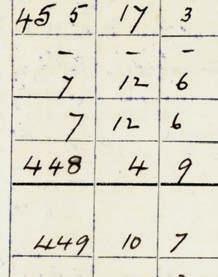 455 17 3
- - -
7 12 6
7 12 6
448 4 9
449 10 7